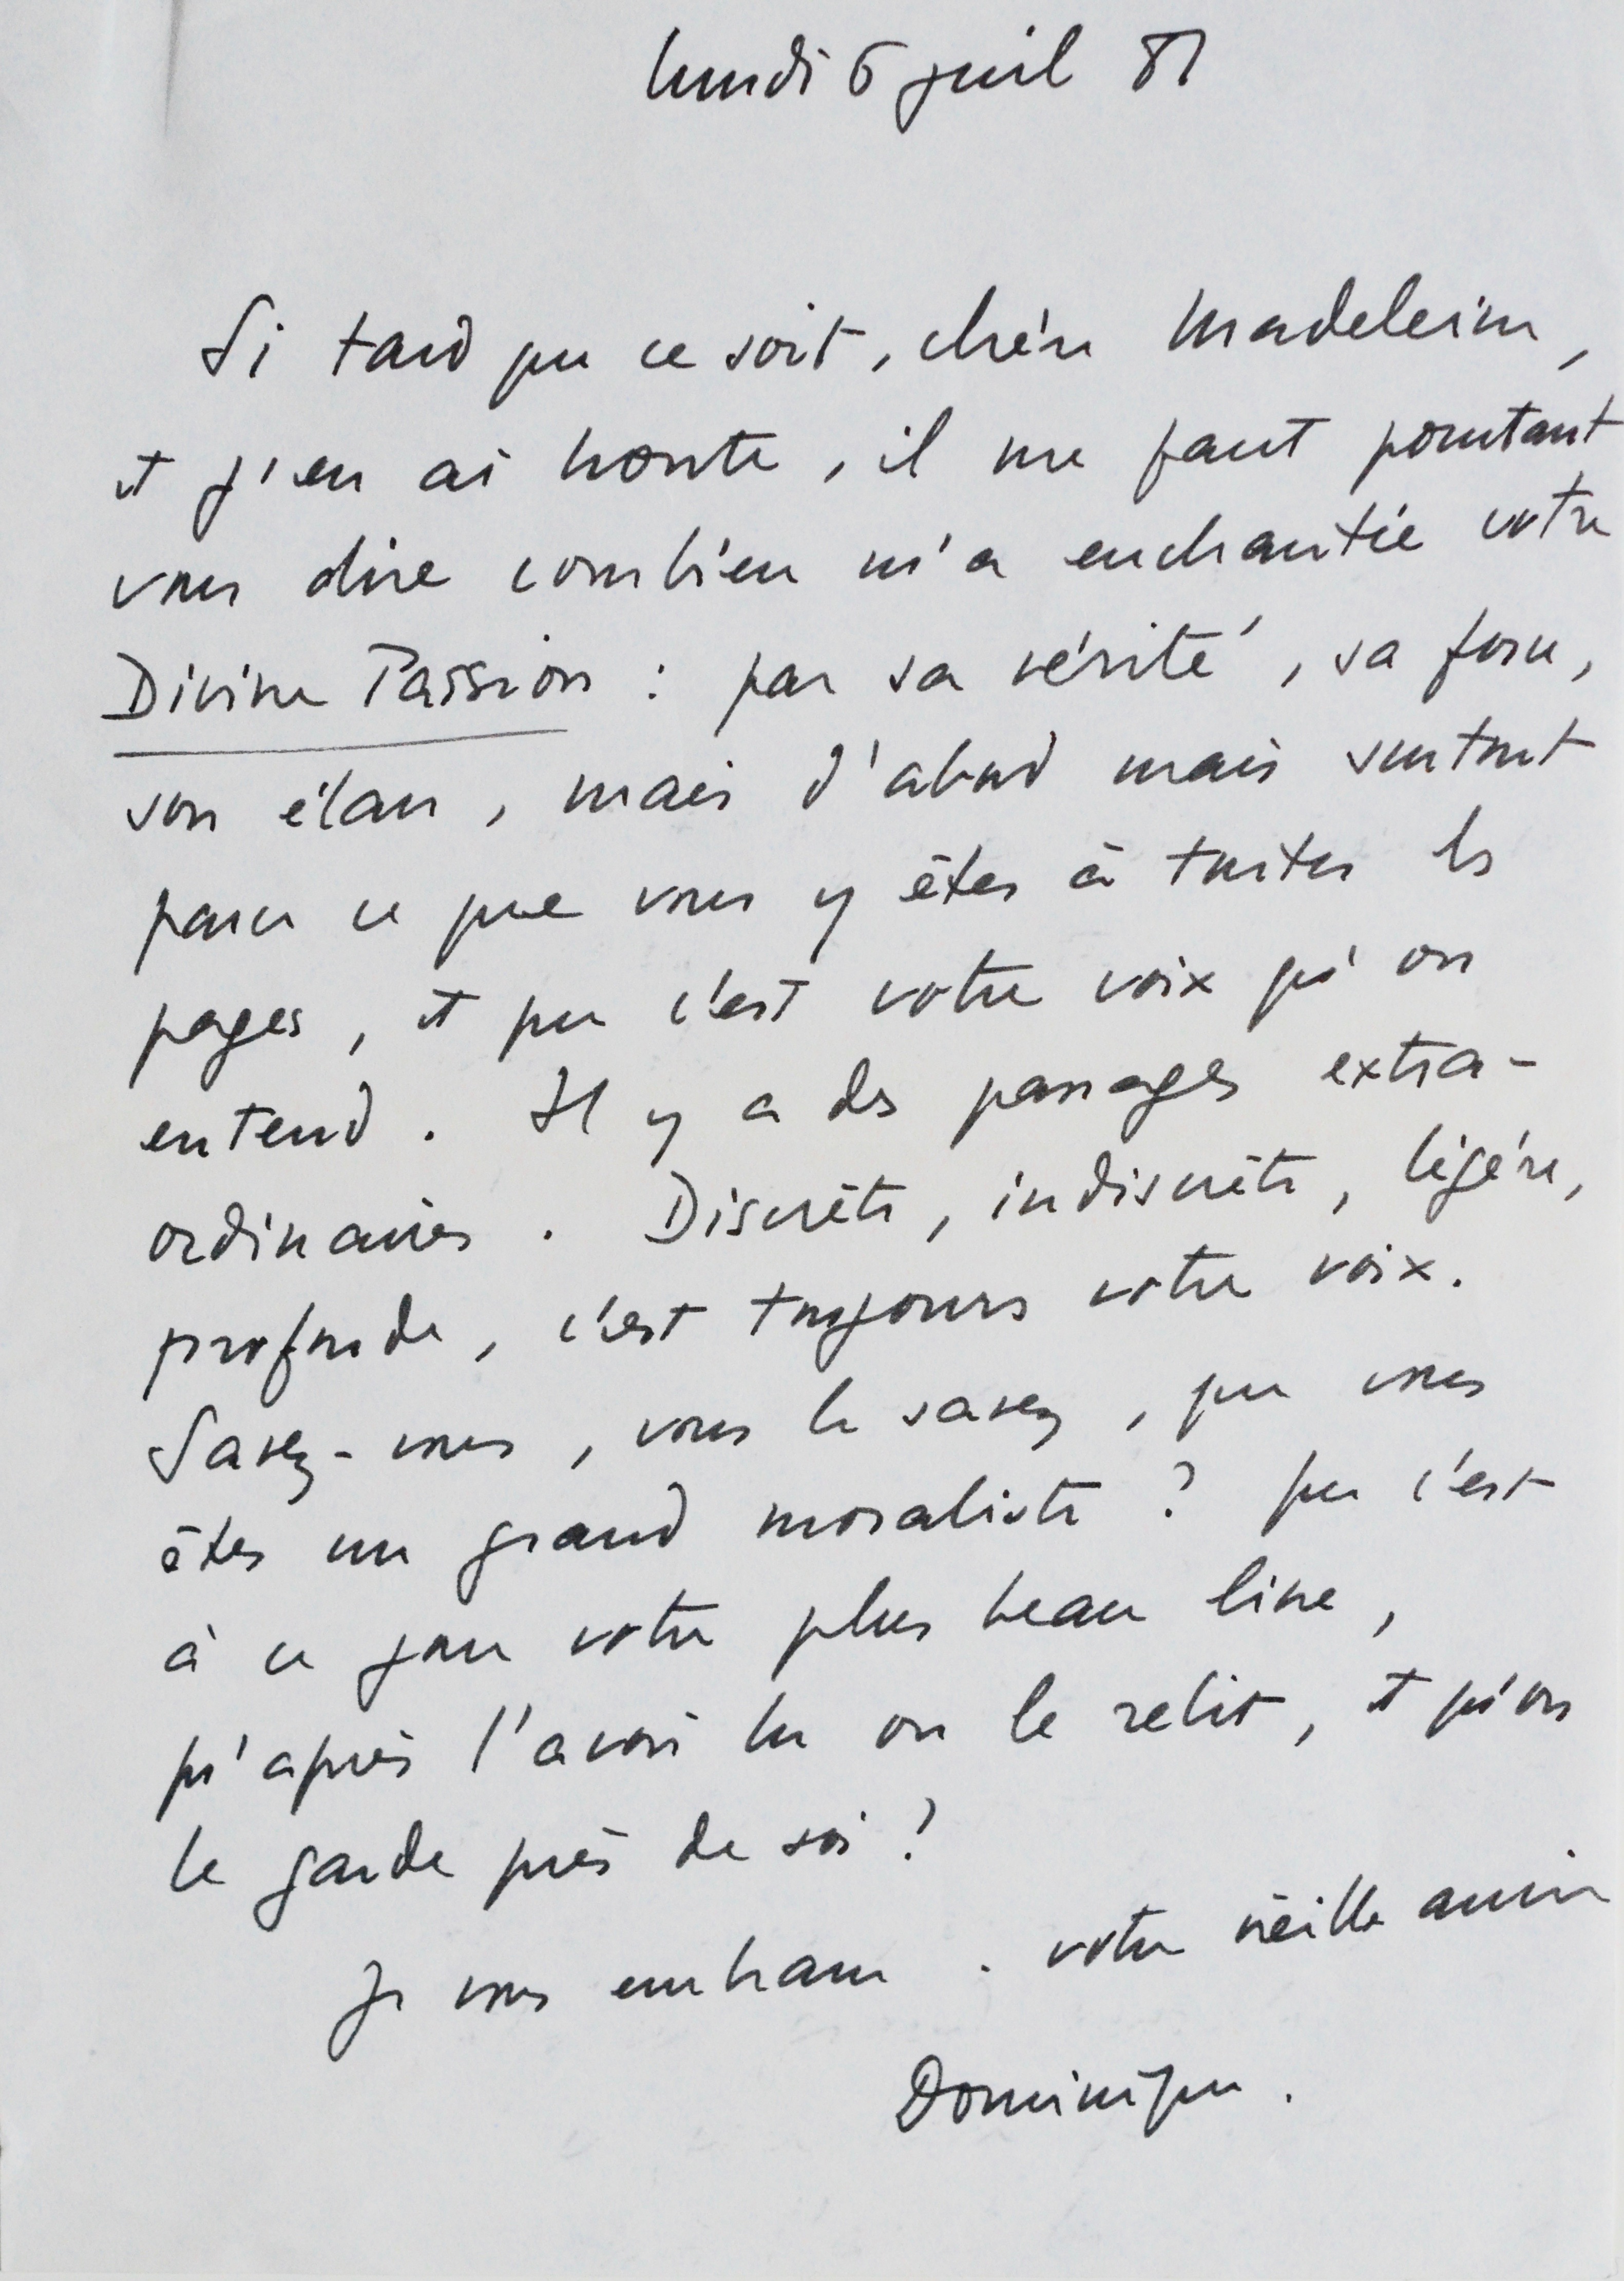 lundi 6 juil 81
Si tard que ce soit, chère Madeleine,
et j'en ai honte, il me faut pourtant
vous dire combien m'a enchantée votre
Divine Passion : par sa vérité, sa force,
son élan, mais d'abord mais surtout
parce ce que vous y êtes à toutes les
pages, et que c'est votre voix qu'on
entend. Il y a des passages extra-
ordinaires. Discrète, indiscrète, légère,
profonde, c'est toujours votre voix.
Savez-vous, vous le savez, que vous
êtes un grand moraliste ? que c'est
à ce jour votre plus beau livre,
qu'après l'avoir lu on le relit, et qu'on
le garde près de soi ?
Je vous embrasse. votre vieille amie
Dominique.